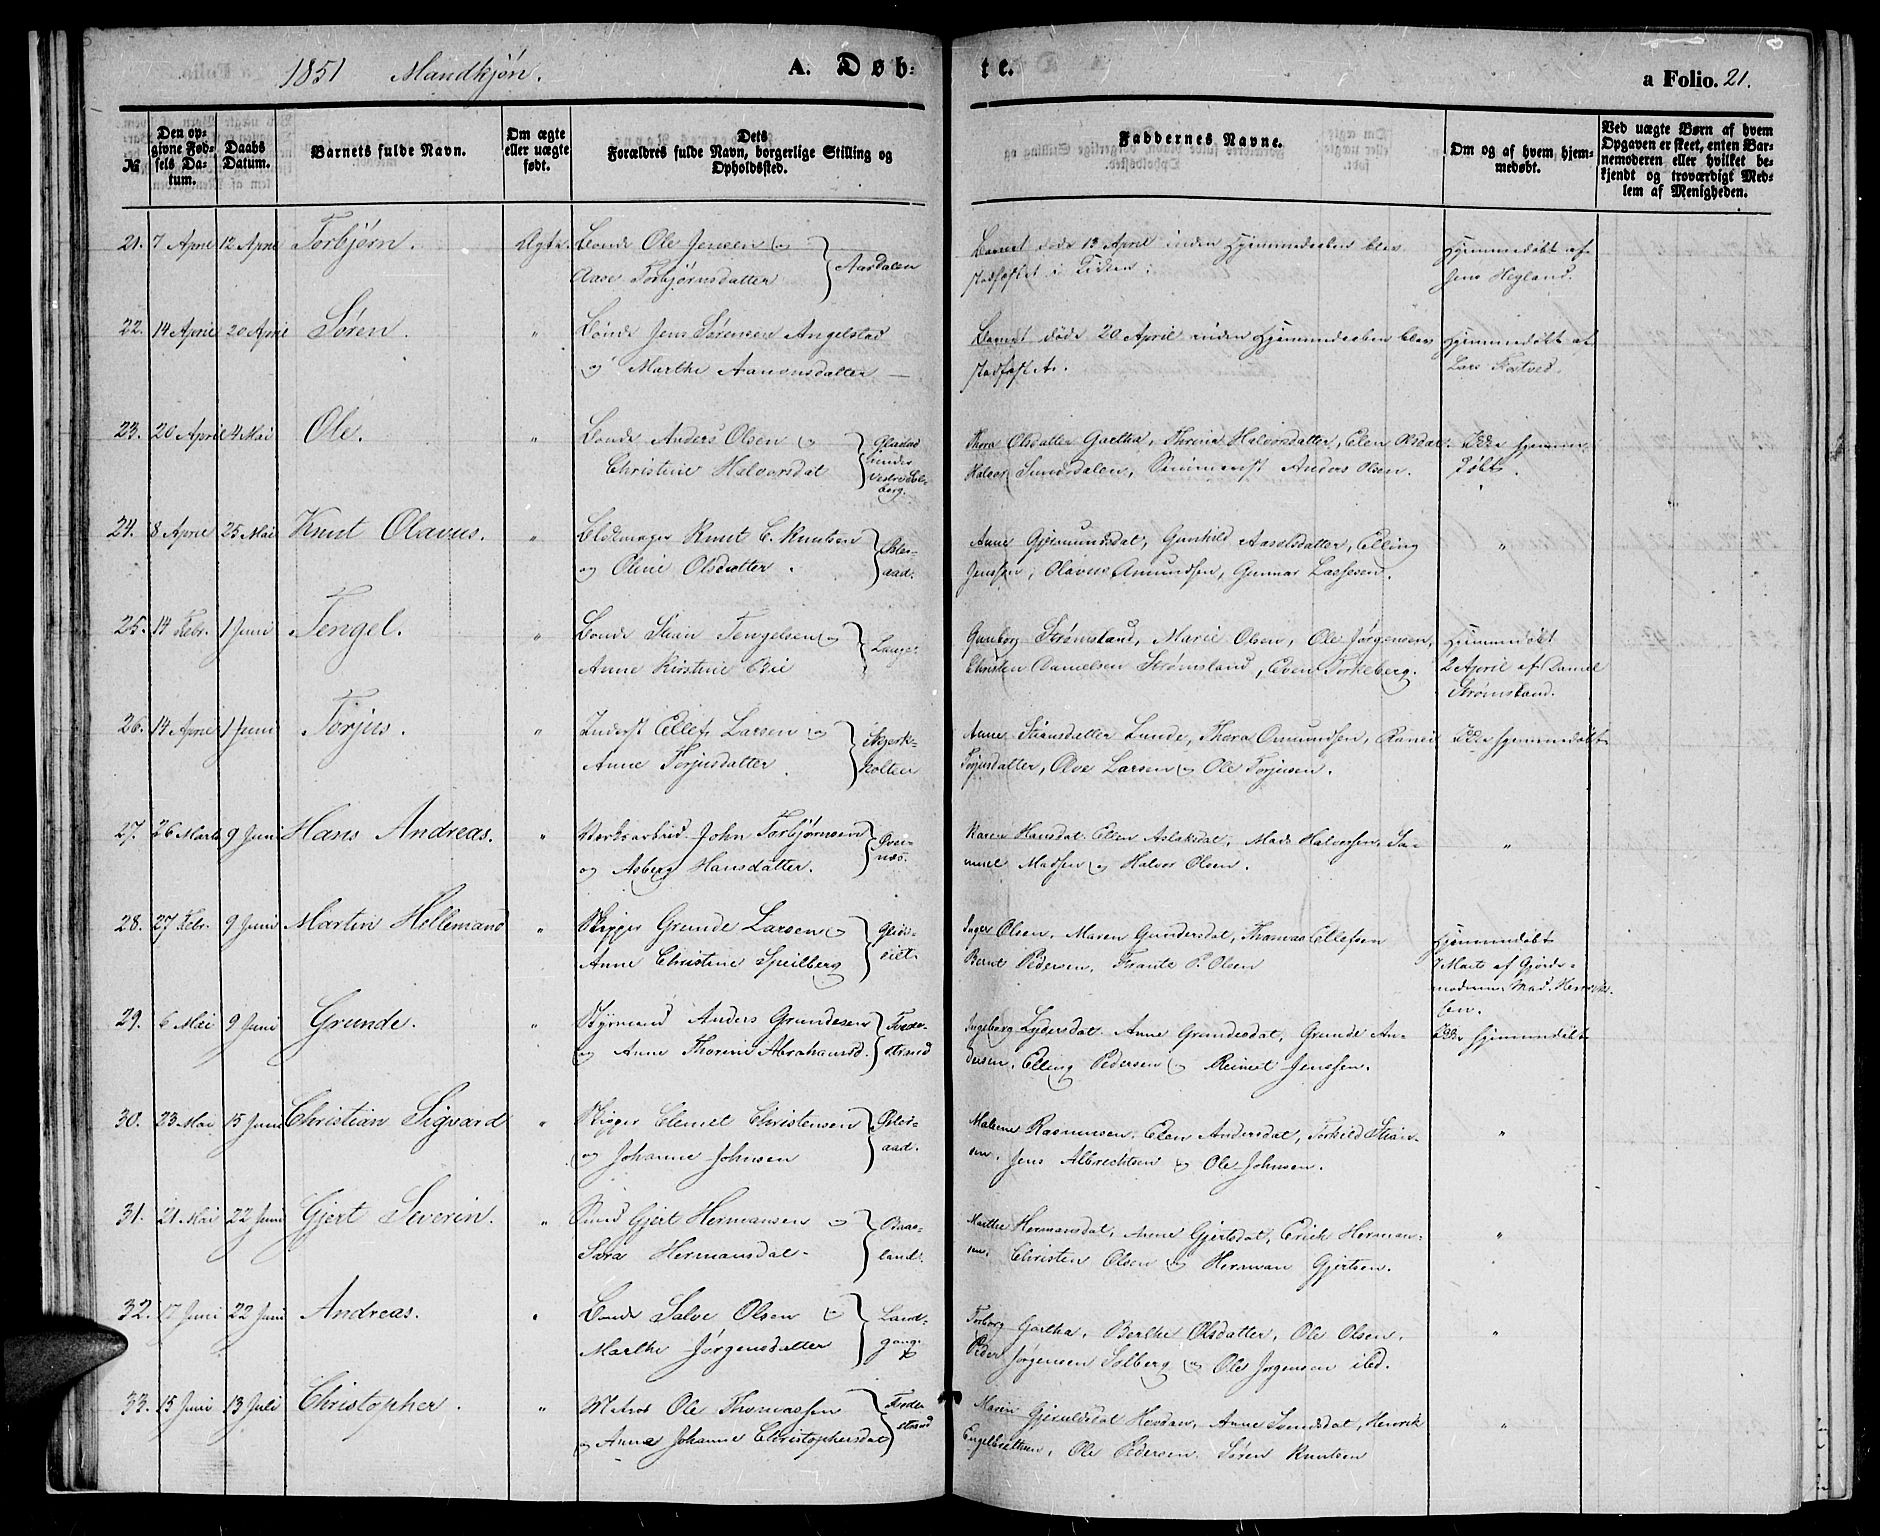 1851 Mandkjøn. A. Døbte. a Folio. 21.
№ | Den opgivne Fødsels Datum. | Daabs Datum. | Barnets fulde Navn. | Om ægte eller uægte født. | Dets Forældres fulde Navn, borgerlige Stilling og Opholdssted. | Faddernes Navne. | Om og af hvem hjemmedøbt. | Ved uægte Børn af hvem Opgaven er skeet, enten Barnemoderen eller hvilket bekjendt og troværdigt Medlem af Menigheden.
21. 7 April 12 April Torbjørn. Ægte. Bonde Ole Jensen og
Aase Torbjørnsdatter } Aasdalen
Barnet døde 13 April inden Hjemmedaaben blev
stadfæstet i Kirken.
Hjemmedøbt af
Jens Heyland.
22. 14 April 20 April Søren. " Bonde Jens Sørensen Angelstad
og Marthe Aanonsdatter
Barnet døde 20 April inden Hjemmedaaben blev
stadfæstet.
Hjemmedøbt af
Lars
23. 20 April 4 Mai Ole. " Bonde Anders Olsen og
Christine Halvorsdat } under Vestre Solberg.
Thora Olsdatter Gjertha, Halvorsdatter, Elen Olsdat.
Halvor Anders Olsen.
Ikke hjemmedøbt.
24. 8 April 25 Mai Knut Olavus. " Knut C. Knutsen
og Oline Olsdatter. } Østeraad.
Anne Gjermundsdat, Gunhild Elling
Jenssen, Olavus Amundsen, Gunnar Lassesen.
"
25. 14 Febr. 1 Juni Tengel. " Bonde Stian Tengelsen og
Anne Kirstine Bie } Lunge
Gunborg Strømsland, Marie Olsen, Ole Jørgensen,
Christen Danielsen Strømsland, Even Torkeberg.
Hjemmedøbt
2 April af Daniel
Strømsland.
26. 14 April 1 Juni Torjus. " Inderst Ellef Larsen og
Anne Torjusdatter. } Skjerkholten
Anne Stiansdatter Lunde, Thora Osmundsen,
Torjusdatter, Olve Larsen og Ole Torjusen.
Ikke hjemmedøbt
27. 26 Marts 9 Juni Hans Andreas. " Værksarbeid. John Torbjørnsen
og Asberg Hansdatter. }
Karen Hansdat. Ellen Aslaksdat, Mads Halvorsen, Samuel Madsen og Halvor Olsen.
"
28. 27 Febr. 9 Juni Martin Hellemand " Skipper Grunde Larsen og
Anne Christine Speilberg }
Inger Olsen, Maren Gundersdat, Thomas Ellefsen
Bernt Pedersen, P. Olsen
Hjemmedøbt
7 Marts af Gjordemoderen Mad.
29. 6 Mai 9 Juni Grunde. " Styrmand Anders Grundesen
og Anne Thorine Abrahamsd. } Tvedestrand
Ingeborg Lydersdat. Anne Grundesdat, Grunde Andersen, Elling Pedersen og Reinert Jenssen.
Ikke hjemmedøbt
30. 23 Mai 15 Juni Christian Sigvard " Skipper Clemet Christensen
og Johanne Johnsen } Østeraad.
Malene Rasmussen, Elen Andersdat, Torkild Stiansen, Jens Albrechtsen og Ole Johnsen.
"
31. 21 Mai 22 Juni Gjert Severin. " Smed Gjert Hermansen og
Sara Hermansdat. } Baasland.
Marthe Hermansdat, Anne Gjertsdat, Erick Hermansen, Christen Olsen og Herman Gjertsen.
"
32. 17 Juni 22 Juni Andreas. " Bonde Salve Olsen og
Marthe Jørgensdatter } Landgang
Torborg Gjertha, Berthe Olsdatter, Ole Olsen,
Peder Jørgensen Solberg og Ole Jørgensen ibd.
"
33. 15 Juni 13 Juli Christopher. " Matros Ole Thomassen
og Anne Johanne Christophersdat } Tvedestrand
Maren Gjeruldsdat Anne Svendsdat, Henrik
Engelbretsen, Ole Pedersen, Søren Knutsen
"